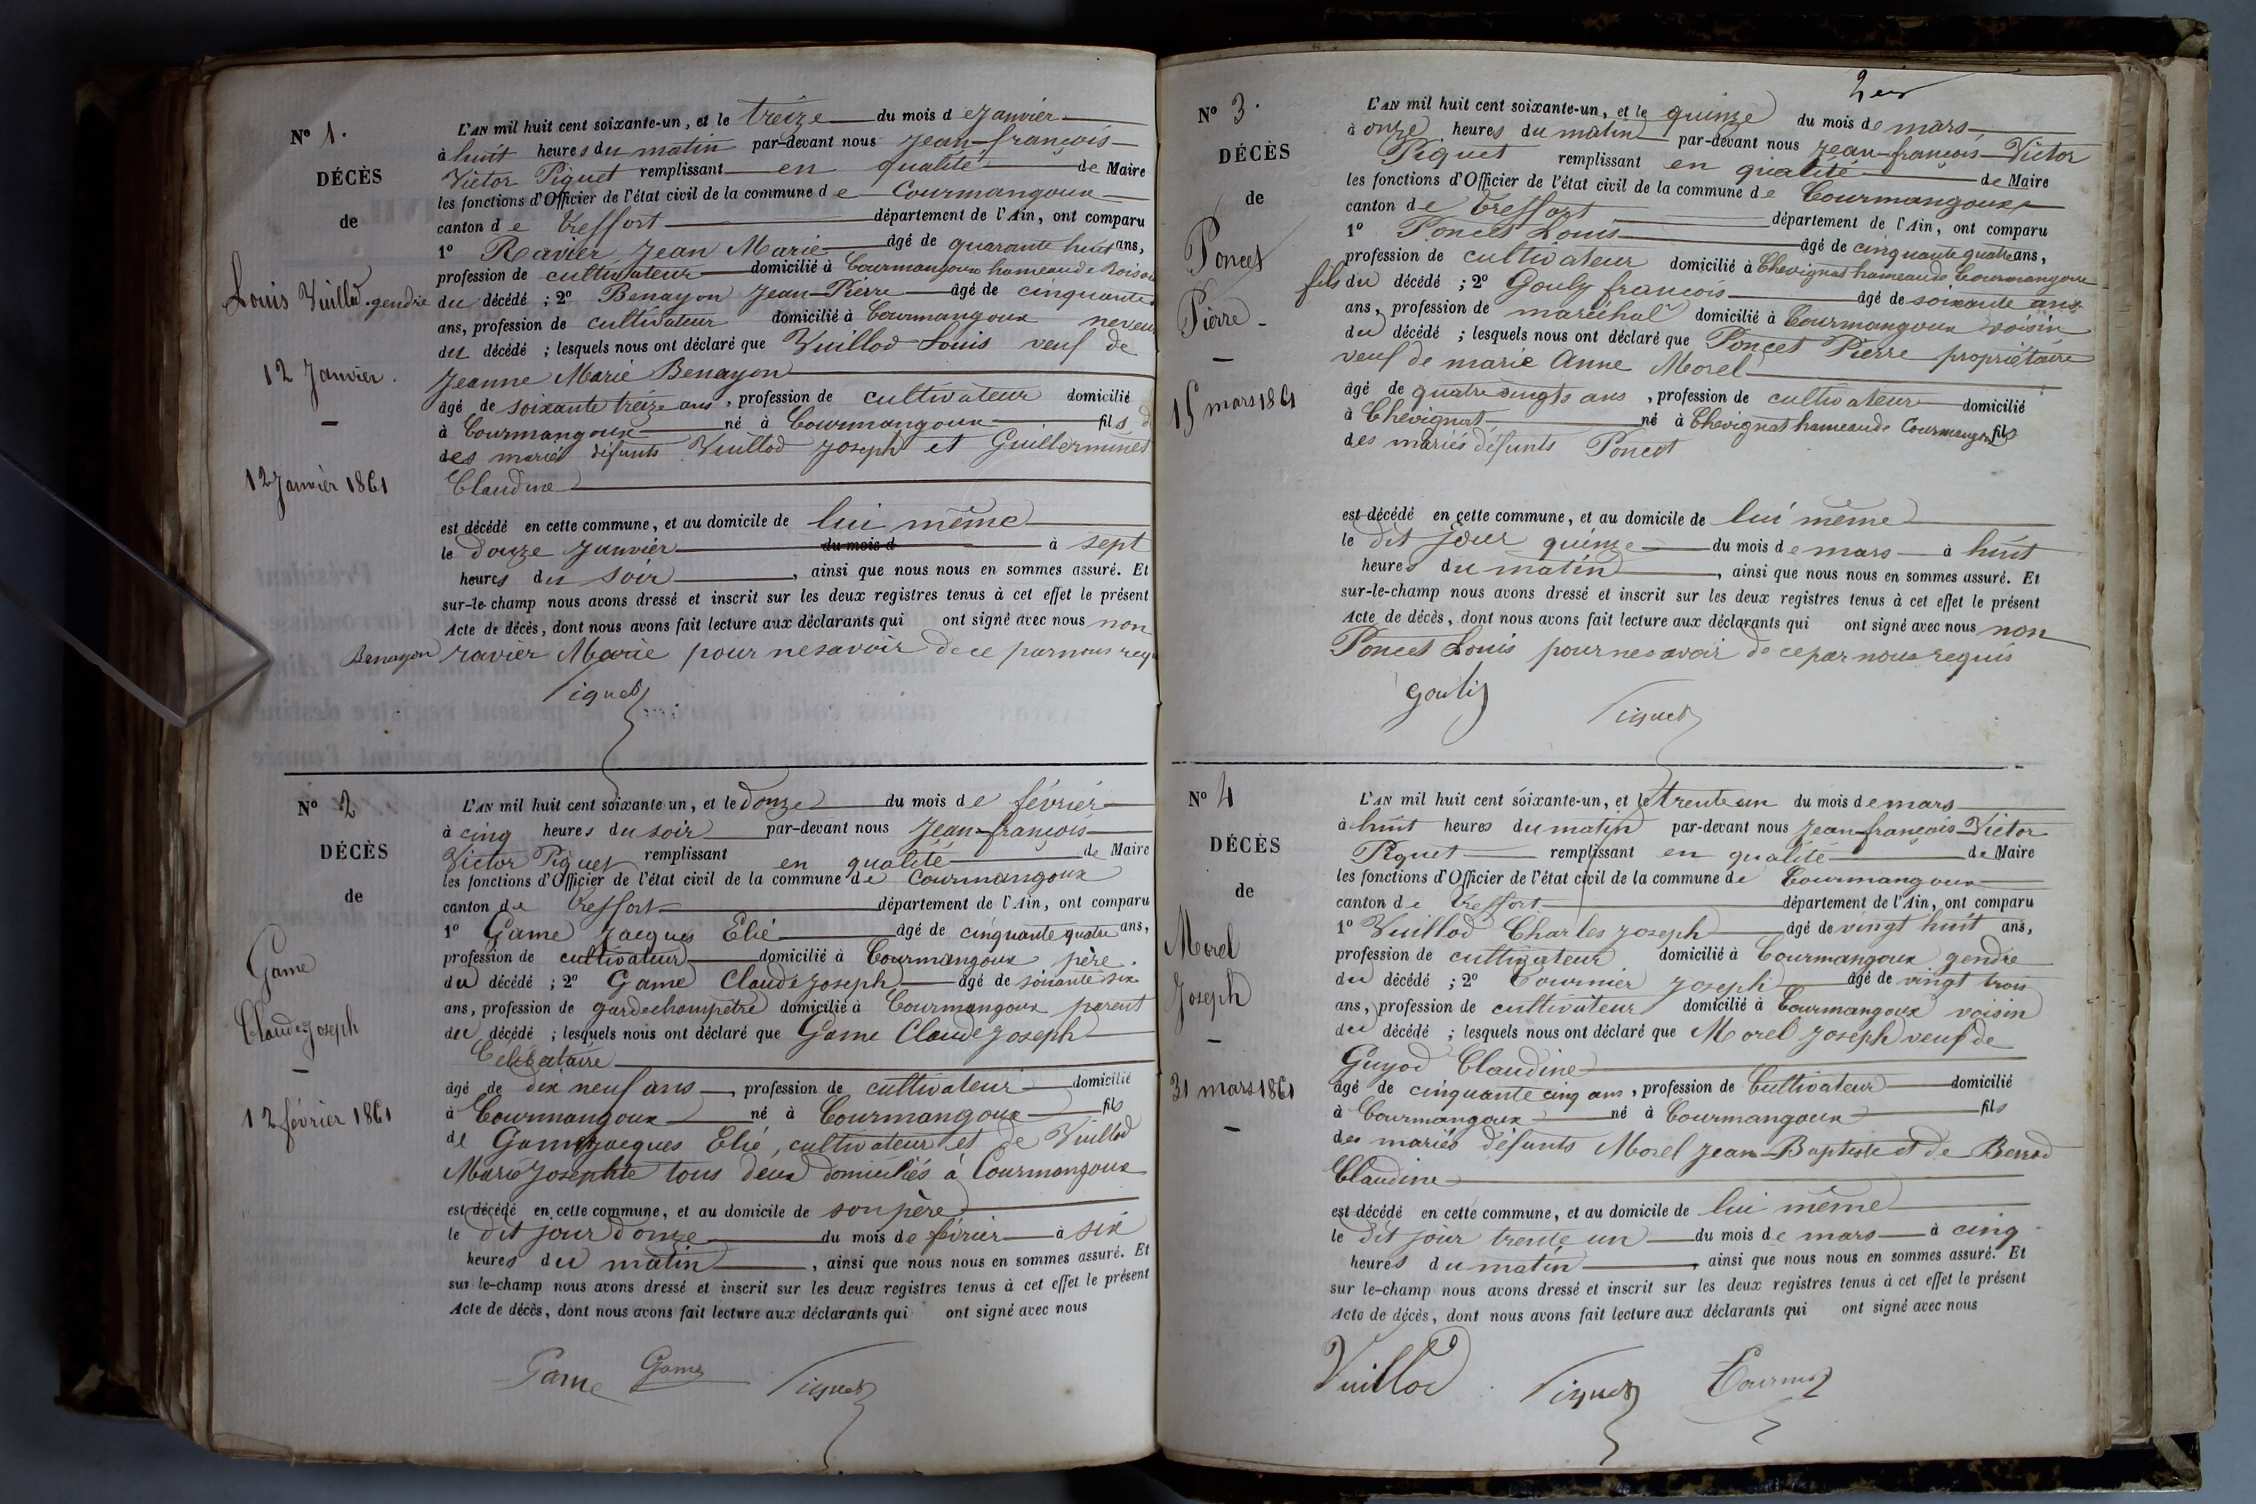 N° 1.
DÉCÈS
de
Louis Vuillod
12 Janvier.
12 Janvier 1861
L'AN mil huit cent soixante-un, et le treize du mois de Janvier
à huit heures du matin par-devant nous Jean-françois
Victor Piquet remplissant en qualité de Maire
les fonctions d'Officier de l'état civil de la commune de Courmangoux
canton de Treffort département de l'Ain, ont comparu
1° Ravier Jean Marie âgé de quarante huit ans,
profession de cultivateur domicilié à Courmangoux hameau de
gendre du décédé ; 2° Benayon Jean-Pierre âgé de cinquante
ans, profession de cultivateur domicilié à Courmangoux neveu
du décédé ; lesquels nous ont déclaré que Vuillod Louis veuf de
Jeanne Marie Benayon
âgé de soixante treize ans, profession de cultivateur domicilié
à Courmangoux né à Courmangoux fils
des mariés défunts Vuillod Joseph et Guillerminet
Claudine
est décédé en cette commune, et au domicile de lui même
le douze Janvier du mois d à sept
heures du soir, ainsi que nous nous en sommes assuré. Et
sur-le-champ nous avons dressé et inscrit sur les deux registres tenus à cet effet le présent
Acte de décès, dont nous avons fait lecture aux déclarants qui ont signé avec nous non
Benayon ravier Marie pour ne savoir de ce par nous requ
Piquet
N° 2
DÉCÈS
de
Game
Claude Joseph
12 février 1861
L'AN mil huit cent soixante un, et le douze du mois de février
à cinq heures du soir par-devant nous Jean-françois
Victor Piquet remplissant en qualité de Maire
les fonctions d'Officier de l'état civil de la commune de Courmangoux
canton de Treffort département de l'Ain, ont comparu
1° Game Jacques Elié âgé de cinquante quatre ans,
profession de cultivateur domicilié à Courmangoux père
du décédé ; 2° Game Claude Joseph âgé de soixante six
ans, profession de garde champêtre domicilié à Courmangoux parent
du décédé ; lesquels nous ont déclaré que Game Claude Joseph
Celibataire
âgé de dix neuf ans, profession de cultivateur domicilié
à Courmangoux né à Courmangoux fils
de Game Jacques Elié, cultivateur et de Vuillod
Marie Josephte tous deux domiciliés à Courmangoux
est décédé en cette commune, et au domicile de son père
le dit jour douze du mois de février à six
heures du matin, ainsi que nous nous en sommes assuré. Et
sur le-champ nous avons dressé et inscrit sur les deux registres tenus à cet effet le présent
Acte de décès, dont nous avons fait lecture aux déclarants qui ont signé avec nous
Game Game Piquet
N° 3.
DÉCÈS
de
Poncet
Pierre
15 mars 1861
L'AN mil huit cent soixante-un, et le quinze du mois de mars
à onze heures du matin par-devant nous Jean-françois-Victor
Piquet remplissant en qualité de Maire
les fonctions d'Officier de l'état civil de la commune de Courmangoux
canton de Treffort département de l'Ain, ont comparu
1° Poncet Louis âgé de cinquante quatre ans,
profession de cultivateur domicilié à Chevignat hameau de Courmangoux
fils du décédé ; 2° Gouly françois âgé de soixante ans
ans, profession de maréchal domicilié à Courmangoux voisin
du décédé ; lesquels nous ont déclaré que Poncet Pierre propriétaire
veuf de marie Anne Morel
âgé de quatre vingts ans, profession de cultivateur domicilié
à Chevignat né à Chevignat hameau de Courmangoux fils
des mariés défunts Poncet
est décédé en cette commune, et au domicile de lui même
le dit jour quinze du mois de mars à huit
heures du matin, ainsi que nous nous en sommes assuré. Et
sur-le-champ nous avons dressé et inscrit sur les deux registres tenus à cet effet le présent
Acte de décès, dont nous avons fait lecture aux déclarants qui ont signé avec nous non
Poncet Louis pour ne savoir de ce par nous requis
Gouli Piquet
N° 4
DÉCÈS
de
Morel
Joseph
31 mars 1861
L'AN mil huit cent soixante-un, et le trente un du mois de mars
à huit heures du matin par-devant nous Jean-françois-Victor
Piquet remplissant en qualité de Maire
les fonctions d'Officier de l'état civil de la commune de Courmangoux
canton de Treffort département de l'Ain, ont comparu
1° Vuillod Charles Joseph âgé de vingt huit ans,
profession de cultivateur domicilié à Courmangoux gendre
du décédé ; 2° Tournier Joseph âgé de vingt trois
ans, profession de cultivateur domicilié à Courmangoux voisin
du décédé ; lesquels nous ont déclaré que Morel Joseph veuf de
Guyod Claudine
âgé de cinquante cinq ans, profession de Cultivateur domicilié
à Courmangoux né à Courmangoux fils
des mariés défunts Morel Jean-Baptiste et de
Claudine
est décédé en cette commune, et au domicile de lui même
le dit jour trente un du mois de mars à cinq
heures du matin, ainsi que nous nous en sommes assuré. Et
sur le-champ nous avons dressé et inscrit sur les deux registres tenus à cet effet le présent
Acte de décès, dont nous avons fait lecture aux déclarants qui ont signé avec nous
Vuillod Piquet Tournier